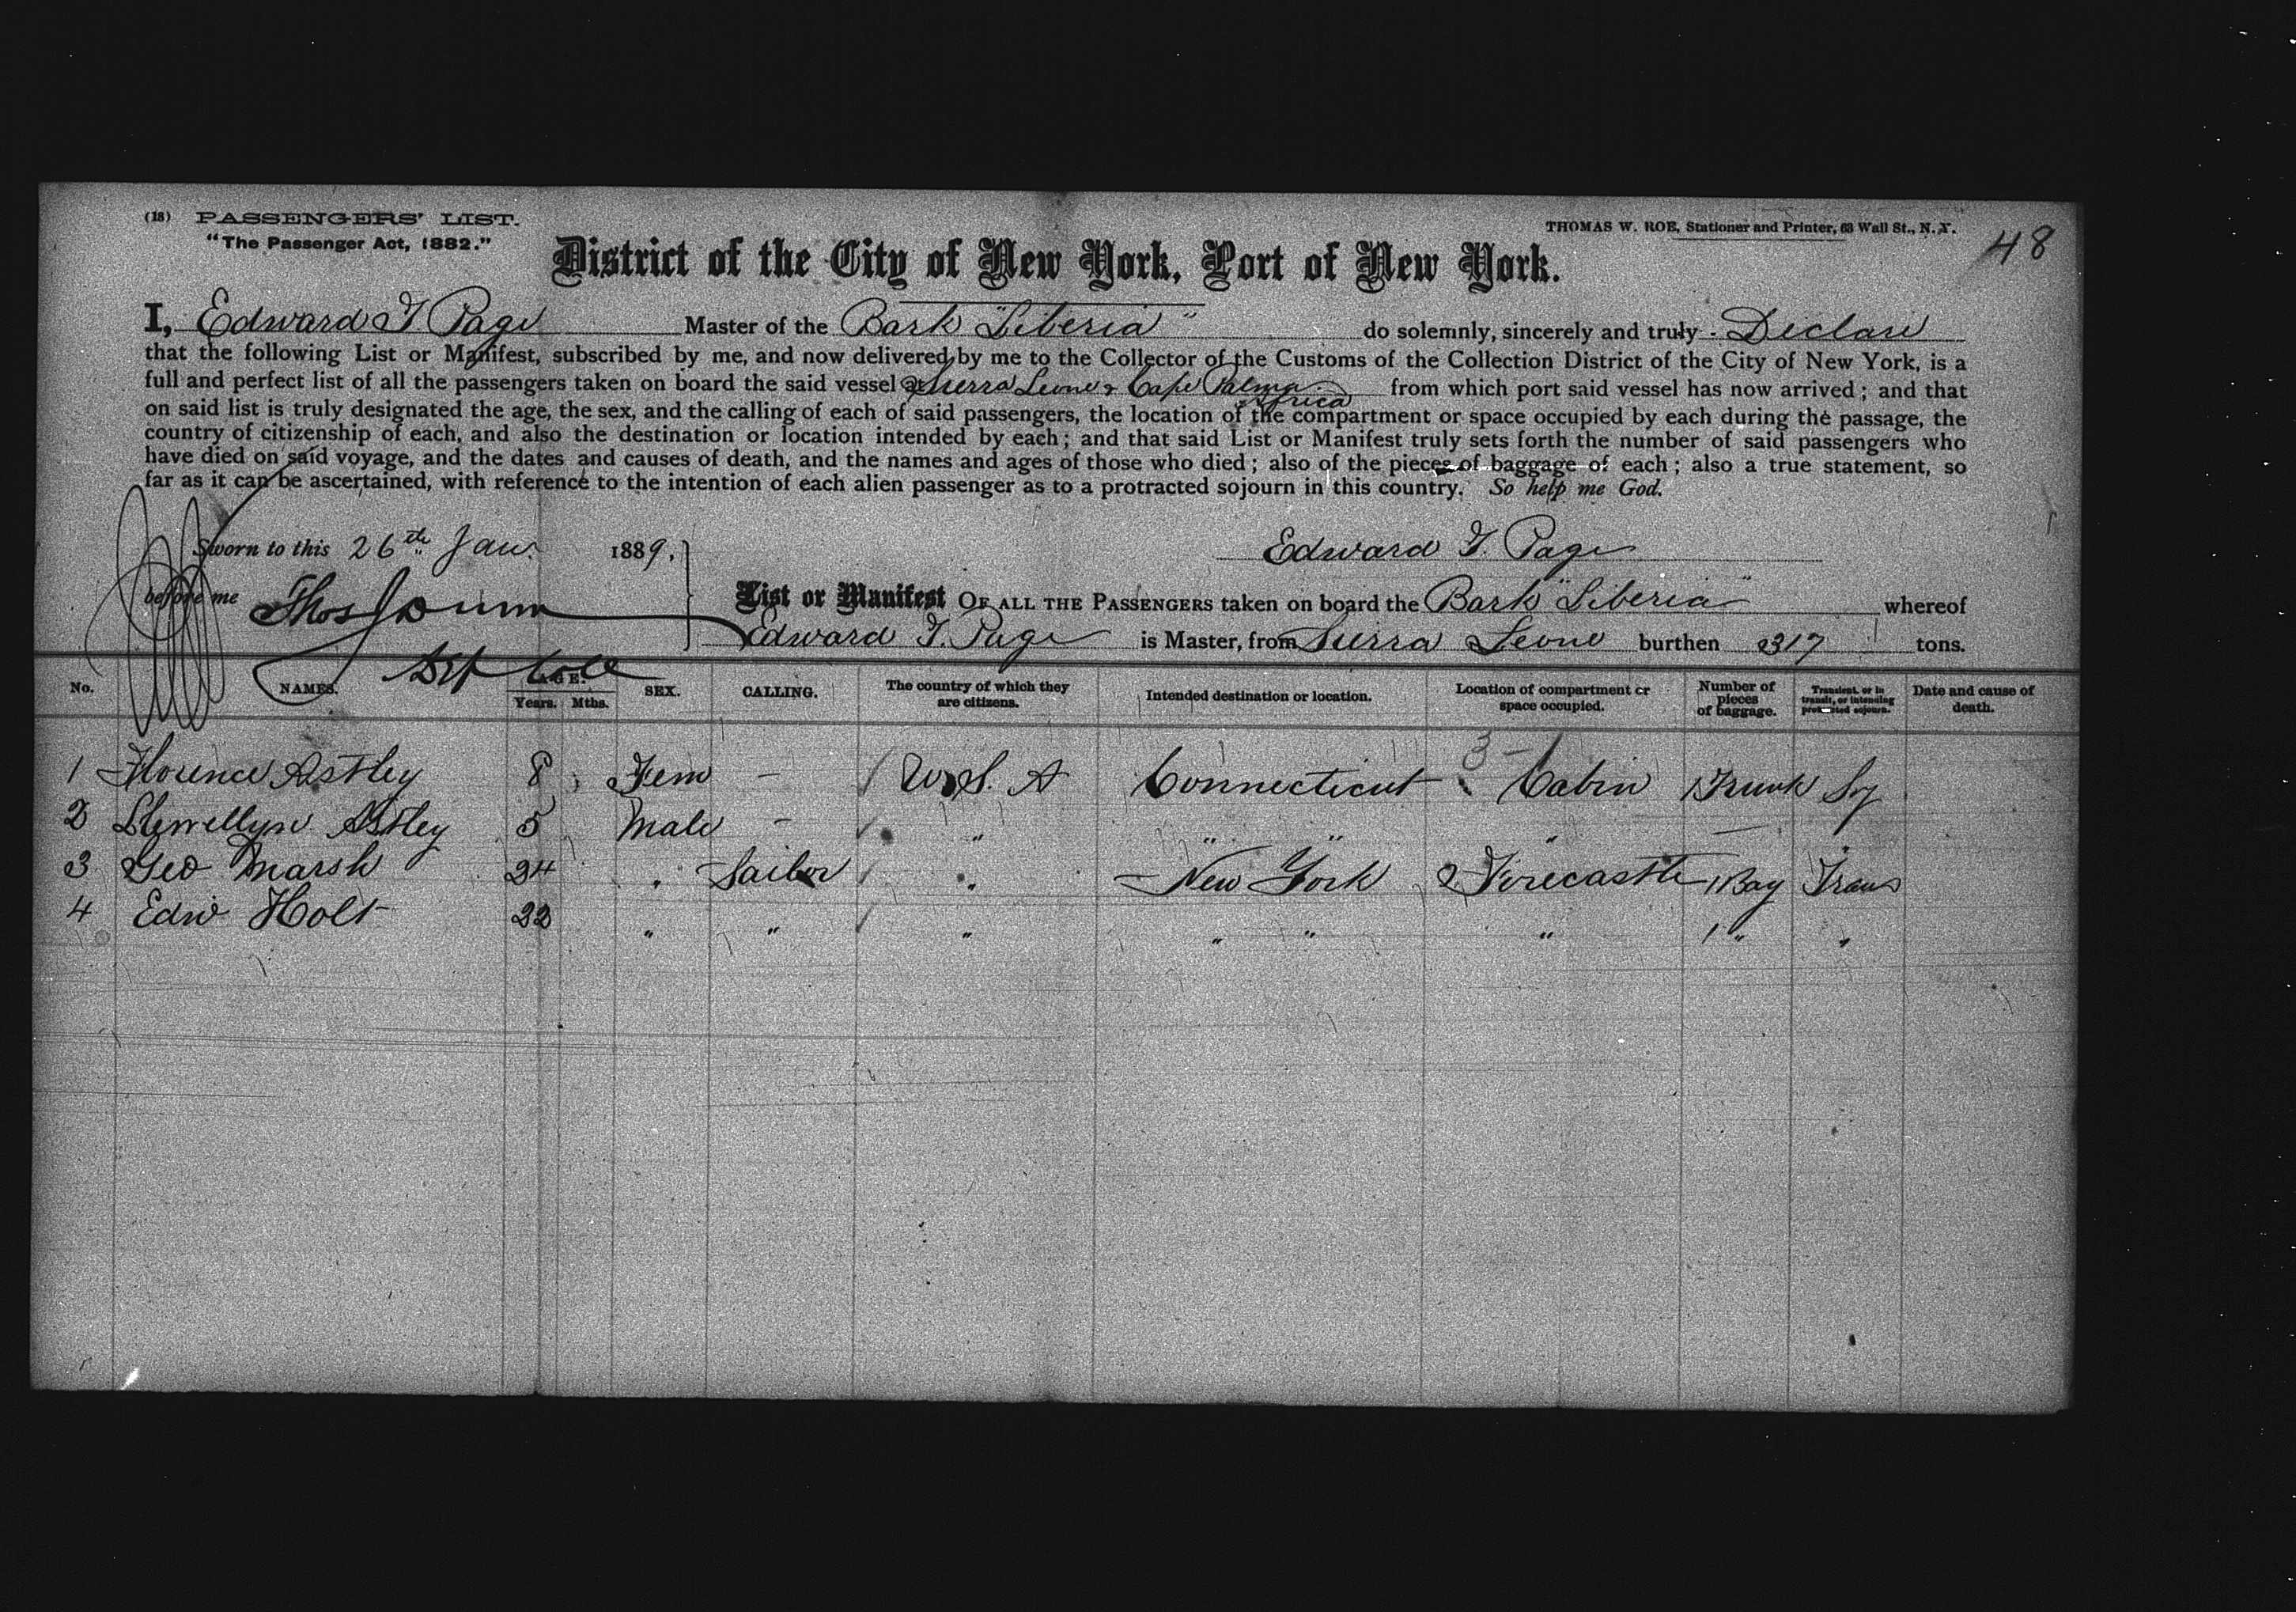 (18) PASSENGERS' LIST.
"The Passenger Act, 1882."
THOMAS W. ROE, Stationer and Printer, 63 Wall St., N. Y.
48
District of the City of New York, Port of New York.
I, Edward T Page Master of the Bark "Liberia" do solemnly, sincerely and truly Declare
that the following List or Manifest, subscribed by me, and now delivered by me to the Collector of the Customs of the Collection District of the City of New York, is a
full and perfect list of all the passengers taken on board the said vessel at Sierra Leone & Cape Palma Africa from which port said vessel has now arrived; and that
on said list is truly designated the age, the sex, and the calling of each of said passengers, the location of the compartment or space occupied by each during the passage, the
country of citizenship of each, and also the destination or location intended by each; and that said List or Manifest truly sets forth the number of said passengers who
have died on said voyage, and the dates and causes of death, and the names and ages of those who died; also of the pieces of baggage of each; also a true statement, so
far as it can be ascertained, with reference to the intention of each alien passenger as to a protracted sojourn in this country. So help me God.
Sworn to this 26th Jan. 1889,
Edward T. Page
before me Thos J Dunn
Dep Coll
List or Manifest OF ALL THE PASSENGERS taken on board the Bark "Liberia" whereof
Edward T. Page is Master, from Sierra Leone burthen 317 tons.
No. NAMES. AGE. Years. Mths. SEX. CALLING. The country of which they are citizens. Intended destination or location. Location of compartment or space occupied. Number of pieces of baggage. Transient, or in transit, or intending protracted sojourn. Date and cause of death.
1 Florence Astley 8 Fem — U. S. A Connecticut 3 - Cabin 1 Trunk
2 Llewellyn Astley 5 Male — " " " " —
3 Geo Marsh 24 " Sailor " New York 2 Forecastle 1 Bag Trans
4 Edw Holt 22 " " " " " " 1 " "